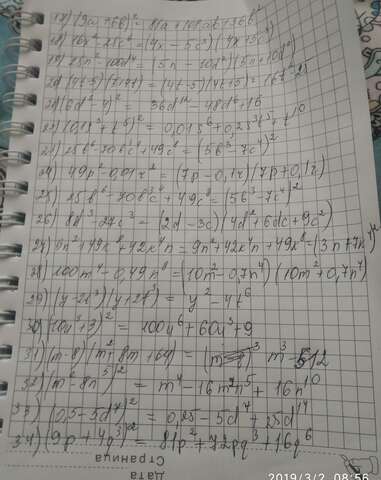 17) (9a + 6b)² = 81a² + 108ab + 36b²
18) 16x² - 25c⁶ = (4x - 5c³)(4x + 5c³)
19) 25n² - 100d⁴ = (5n - 10d²)(5n + 10d²)
20) (4t - 5)(4t + 5) = 16t² - 25
21) (6d⁶ - 4)² = 36d¹² - 48d⁶ + 16
23) 25b⁶ - 70b³c⁴ + 49c⁸ = (5b³ - 7c⁴)²
24) 49p² - 0,01r² = (7p - 0,1r)(7p + 0,1r)
25) 25b⁶ - 70b³c⁴ + 49c⁸ = (5b³ - 7c⁴)²
26) 8d³ - 27c³ = (2d - 3c)(4d² + 6dc + 9c²)
27) 9n² + 49x⁸ + 42x⁴n = 9n² + 42x⁴n + 49x⁸ = (3n + 7x⁴)²
28) 100m⁴ - 0,49n⁸ = (10m² - 0,7n⁴)(10m² + 0,7n⁴)
29) (y - 2t³)(y + 2t³) = y² - 4t⁶
30) (10u³ + 3)² = 100u⁶ + 60u³ + 9
31) (m - 8)(m² + 8m + 64) = m³ - 512
32) (m² - 8n⁵)² = m⁴ - 16m²n⁵ + 16n¹⁰
33) (0,5 - 5d⁷)² = 0,25 - 5d⁷ + 25d¹⁴
34) (9p + 4q³)² = 81p² + 72pq³ + 16q⁶
Дата
Страница
2019/3/2 08:56